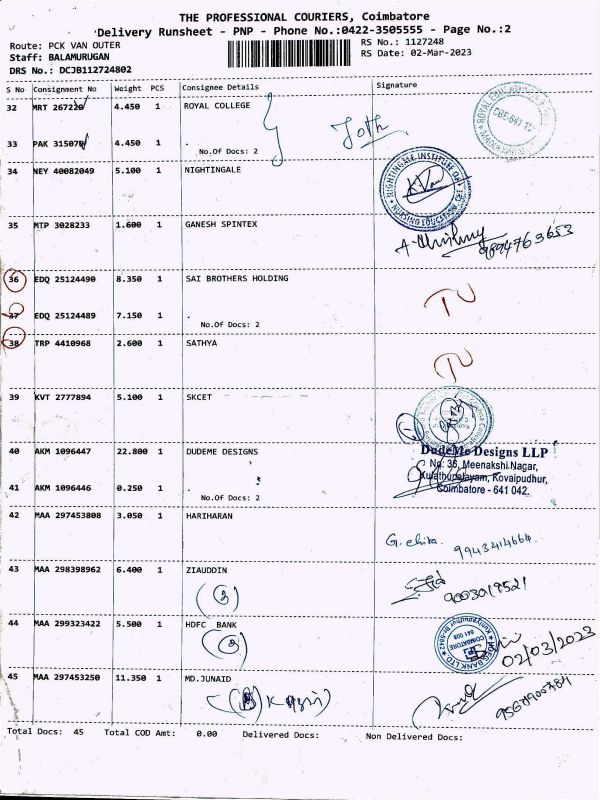 THE PROFESSIONAL COURIERS, Coimbatore
Delivery Runsheet - PNP - Phone No.:0422-3505555 - Page No.:2
Route: PCK VAN OUTER RS No.: 1127248
Staff: BALAMURUGAN RS Date: 02-Mar-2023
DRS No.: DCJB112724802
S No Consignment No Weight PCS Consignee Details Signature
32 MRT 267220 4.450 1 ROYAL COLLEGE
33 PAK 315070 4.450 1 .
No.Of Docs: 2
34 NEY 40082049 5.100 1 NIGHTINGALE
NIGHTINGALE INSTITUTE OF
NURSING EDUCATION
35 MTP 3028233 1.600 1 GANESH SPINTEX
9894763653
36 EDQ 25124490 8.350 1 SAI BROTHERS HOLDING
37 EDQ 25124489 7.150 1 .
No.Of Docs: 2
38 TRP 4410968 2.600 1 SATHYA
39 KVT 2777894 5.100 1 SKCET
40 AKM 1096447 22.800 1 DUDEME DESIGNS
DudeMe Designs LLP
No: 36, Meenakshi Nagar,
Kulathupalayam, Kovaipudhur,
Coimbatore - 641 042.
41 AKM 1096446 0.250 1 .
No.Of Docs: 2
42 MAA 297453808 3.050 1 HARIHARAN
9943414664
43 MAA 298398962 6.400 1 ZIAUDDIN
9003019521
44 MAA 299323422 5.500 1 HDFC BANK
HDFC BANK LTD
COIMBATORE
641 008
02/03/2023
45 MAA 297453250 11.350 1 MD.JUNAID
Total Docs: 45 Total COD Amt: 0.00 Delivered Docs: Non Delivered Docs: